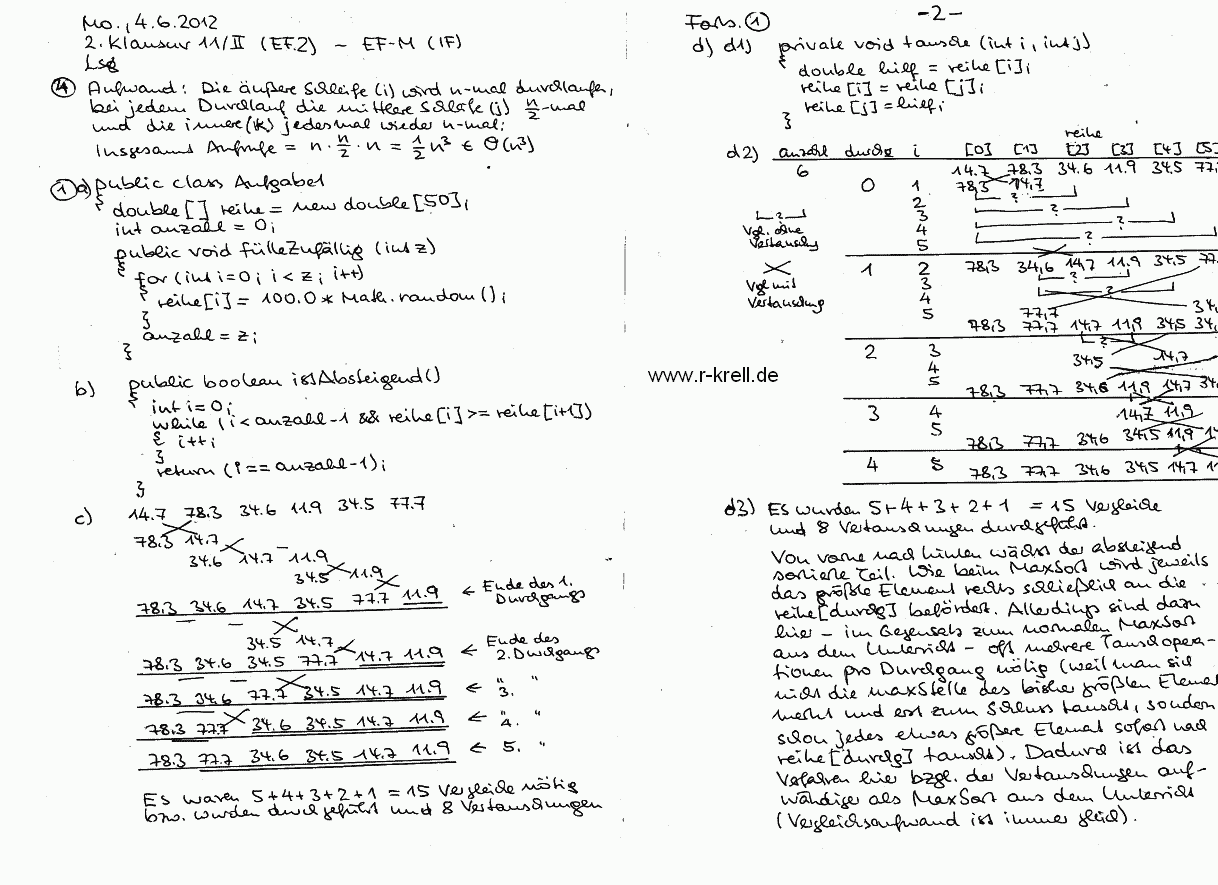 Mo., 4.6.2012
2. Klausur 11/II (EF.2) – EF-M (IF)
Lsg
④ Aufwand: Die äußere Schleife (i) wird n-mal durchlaufen,
bei jedem Durchlauf die mittlere Schleife (j) n/2-mal
und die innere (k) jedesmal wieder n-mal:
Insgesamt Aufrufe = n · n/2 · n = 1/2 n³ ∈ O(n³)
① a) public class Aufgabe1
{ double[] reihe = new double[50];
int anzahl = 0;
public void fülleZufällig (int z)
{ for (int i=0; i < z; i++)
{ reihe[i] = 100.0 * Math.random();
}
anzahl = z;
}
b) public boolean istAbsteigend()
{ int i=0;
while (i < anzahl-1 && reihe[i] >= reihe[i+1])
{ i++;
}
return (i == anzahl-1);
}
c) 14.7 78.3 34.6 11.9 34.5 77.7
78.3 14.7
34.6 14.7 11.9
34.5 11.9
78.3 34.6 14.7 34.5 77.7 11.9 ← Ende des 1. Durchgangs
34.5 14.7
78.3 34.6 34.5 77.7 14.7 11.9 ← Ende des 2. Durchgangs
78.3 34.6 77.7 34.5 14.7 11.9 ← " 3. "
78.3 77.7 34.6 34.5 14.7 11.9 ← " 4. "
78.3 77.7 34.6 34.5 14.7 11.9 ← 5. "
Es waren 5+4+3+2+1 = 15 Vergleiche nötig
bzw. wurden durchgeführt und 8 Vertauschungen
-2-
Forts. ①
d) d1) private void tausche (int i, int j)
{ double hilf = reihe[i];
reihe[i] = reihe[j];
reihe[j] = hilf;
}
reihe
d2) anzahl durchg i [0] [1] [2] [3] [4] [5]
6 14.7 78.3 34.6 11.9 34.5 77.
0 1 78,3 14,7
2 ?
3 ?
4 ?
5 ?
?
Vgl. ohne
Vertauschg
1 2 78,3 34,6 14,7 11.9 34.5 77.
3 ?
4 ?
5 77,7 34.
78,3 77,7 14,7 11,9 34,5 34,
Vgl mit
Vertauschung
2 3 ?
4 34,5 14,7
5 78,3 77,7 34,6 11,9 14,7 34,
3 4 14,7 11,9
5 78,3 77,7 34,6 34,5 11,9 14
4 5 78,3 77,7 34,6 34,5 14,7 11
www.r-krell.de
d3) Es wurden 5+4+3+2+1 = 15 Vergleiche
und 8 Vertauschungen durchgeführt.
Von vorne nach hinten wächst der absteigend
sortierte Teil. Wie beim MaxSort wird jeweils
das größte Element rechts schließlich an die
reihe[durchg] befördert. Allerdings sind dazu
hier – im Gegensatz zum normalen MaxSort
aus dem Unterricht – oft mehrere Tauschopera-
tionen pro Durchgang nötig (weil man sich
nicht die maxStelle des bisher größten Elemen
merkt und erst zum Schluss tauscht, sondern
schon jedes etwas größere Element sofort nach
reihe[durchg] tauscht). Dadurch ist das
Verfahren hier bzgl. der Vertauschungen auf-
wändiger als MaxSort aus dem Unterricht
(Vergleichsaufwand ist immer gleich).